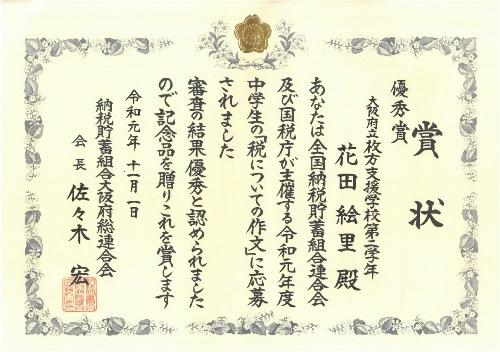 賞状
優秀賞
大阪府立枚方支援学校第二学年
花田絵里殿
あなたは全国納税貯蓄組合連合会
及び国税庁が主催する令和元年度
中学生の「税についての作文」に応募
されました
審査の結果優秀と認められました
ので記念品を贈りこれを賞します
令和元年十一月一日
納税貯蓄組合大阪府総連合会
会長 佐々木宏